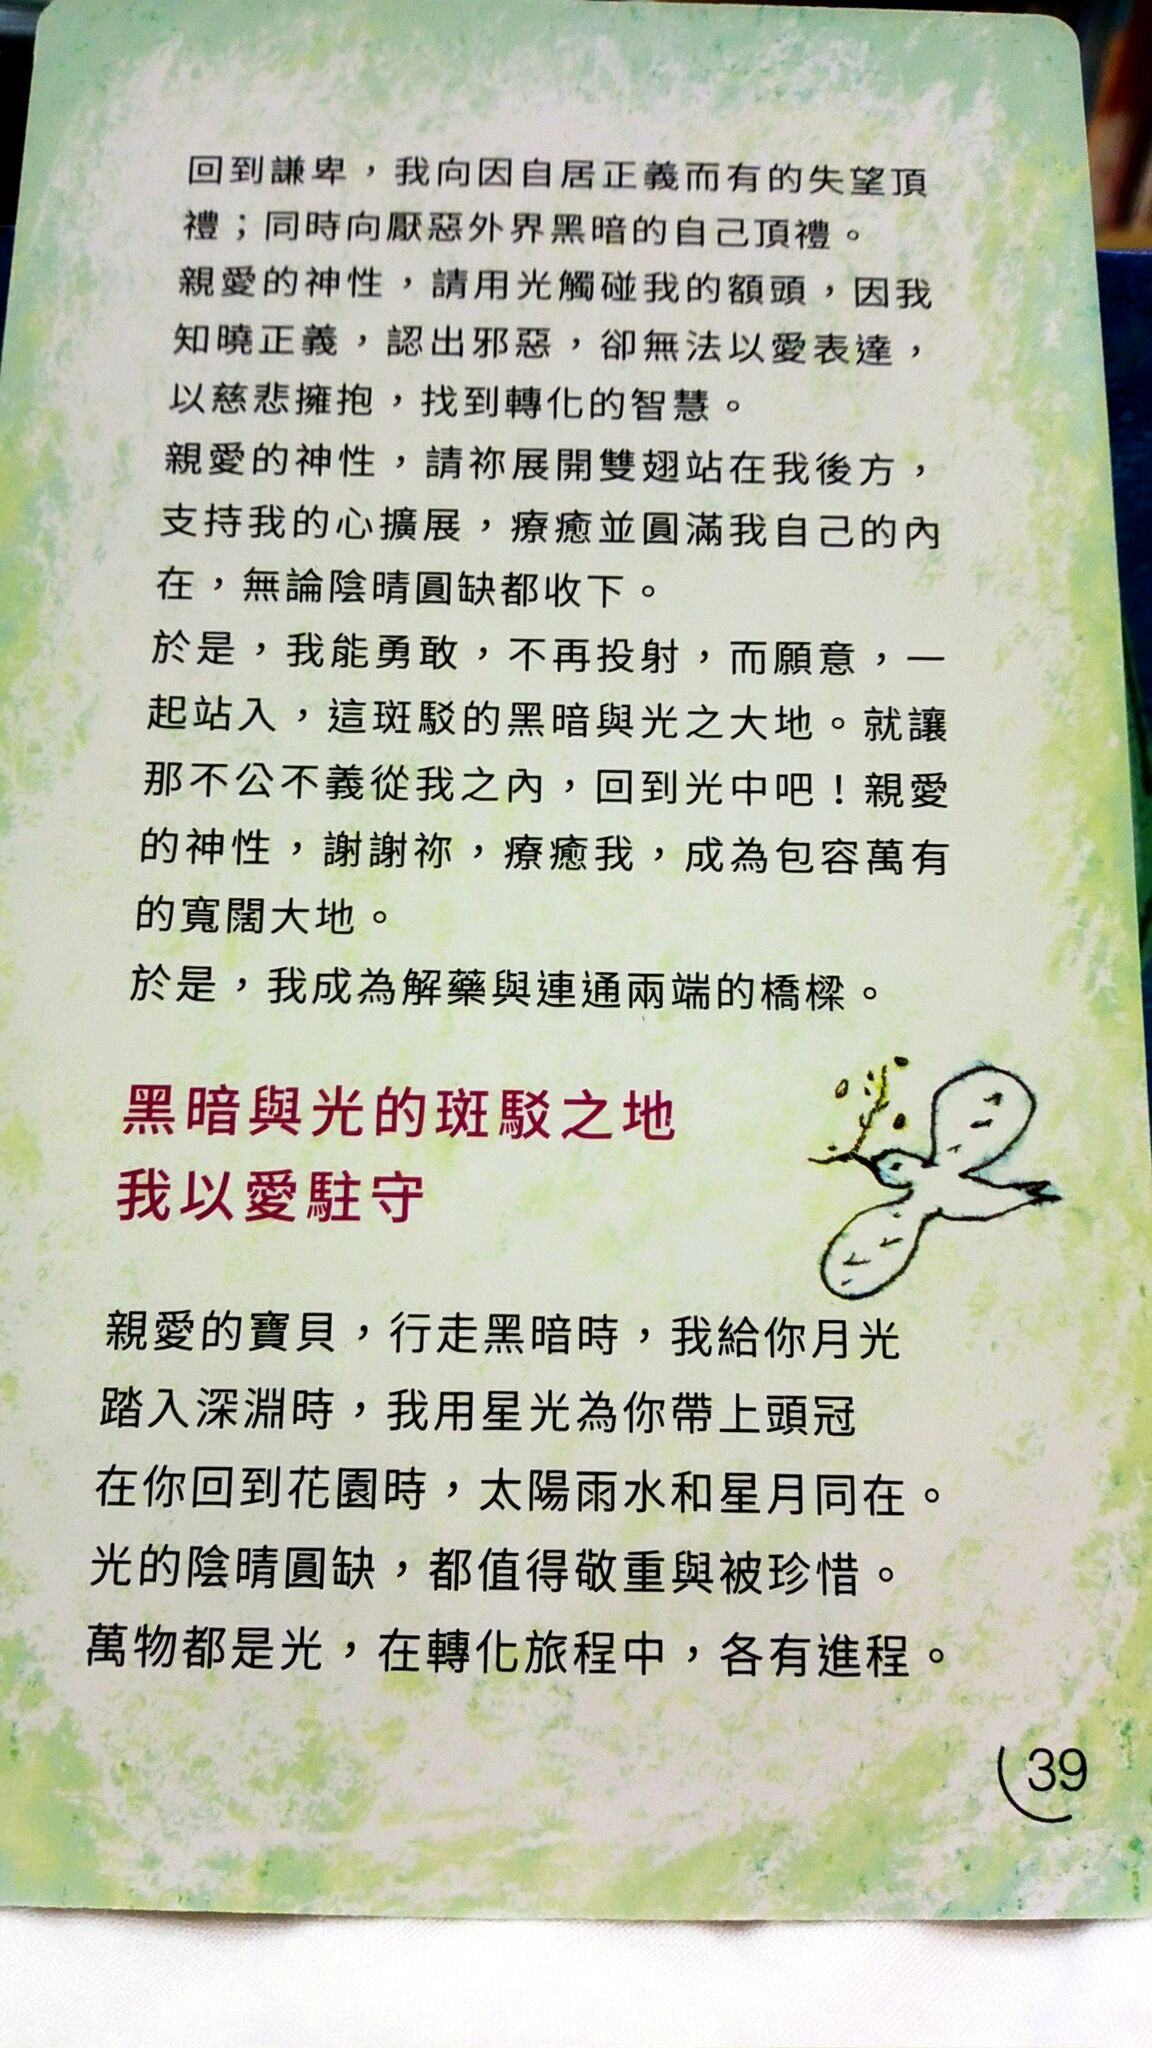 回到謙卑，我向因自居正義而有的失望頂
禮；同時向厭惡外界黑暗的自己頂禮。
親愛的神性，請用光觸碰我的額頭，因我
知曉正義，認出邪惡，卻無法以愛表達，
以慈悲擁抱，找到轉化的智慧。
親愛的神性，請祢展開雙翅站在我後方，
支持我的心擴展，療癒並圓滿我自己的內
在，無論陰晴圓缺都收下。
於是，我能勇敢，不再投射，而願意，一
起站入，這斑駁的黑暗與光之大地。就讓
那不公不義從我之內，回到光中吧！親愛
的神性，謝謝祢，療癒我，成為包容萬有
的寬闊大地。
於是，我成為解藥與連通兩端的橋樑。
黑暗與光的斑駁之地
我以愛駐守
親愛的寶貝，行走黑暗時，我給你月光
踏入深淵時，我用星光為你帶上頭冠
在你回到花園時，太陽雨水和星月同在。
光的陰晴圓缺，都值得敬重與被珍惜。
萬物都是光，在轉化旅程中，各有進程。
39